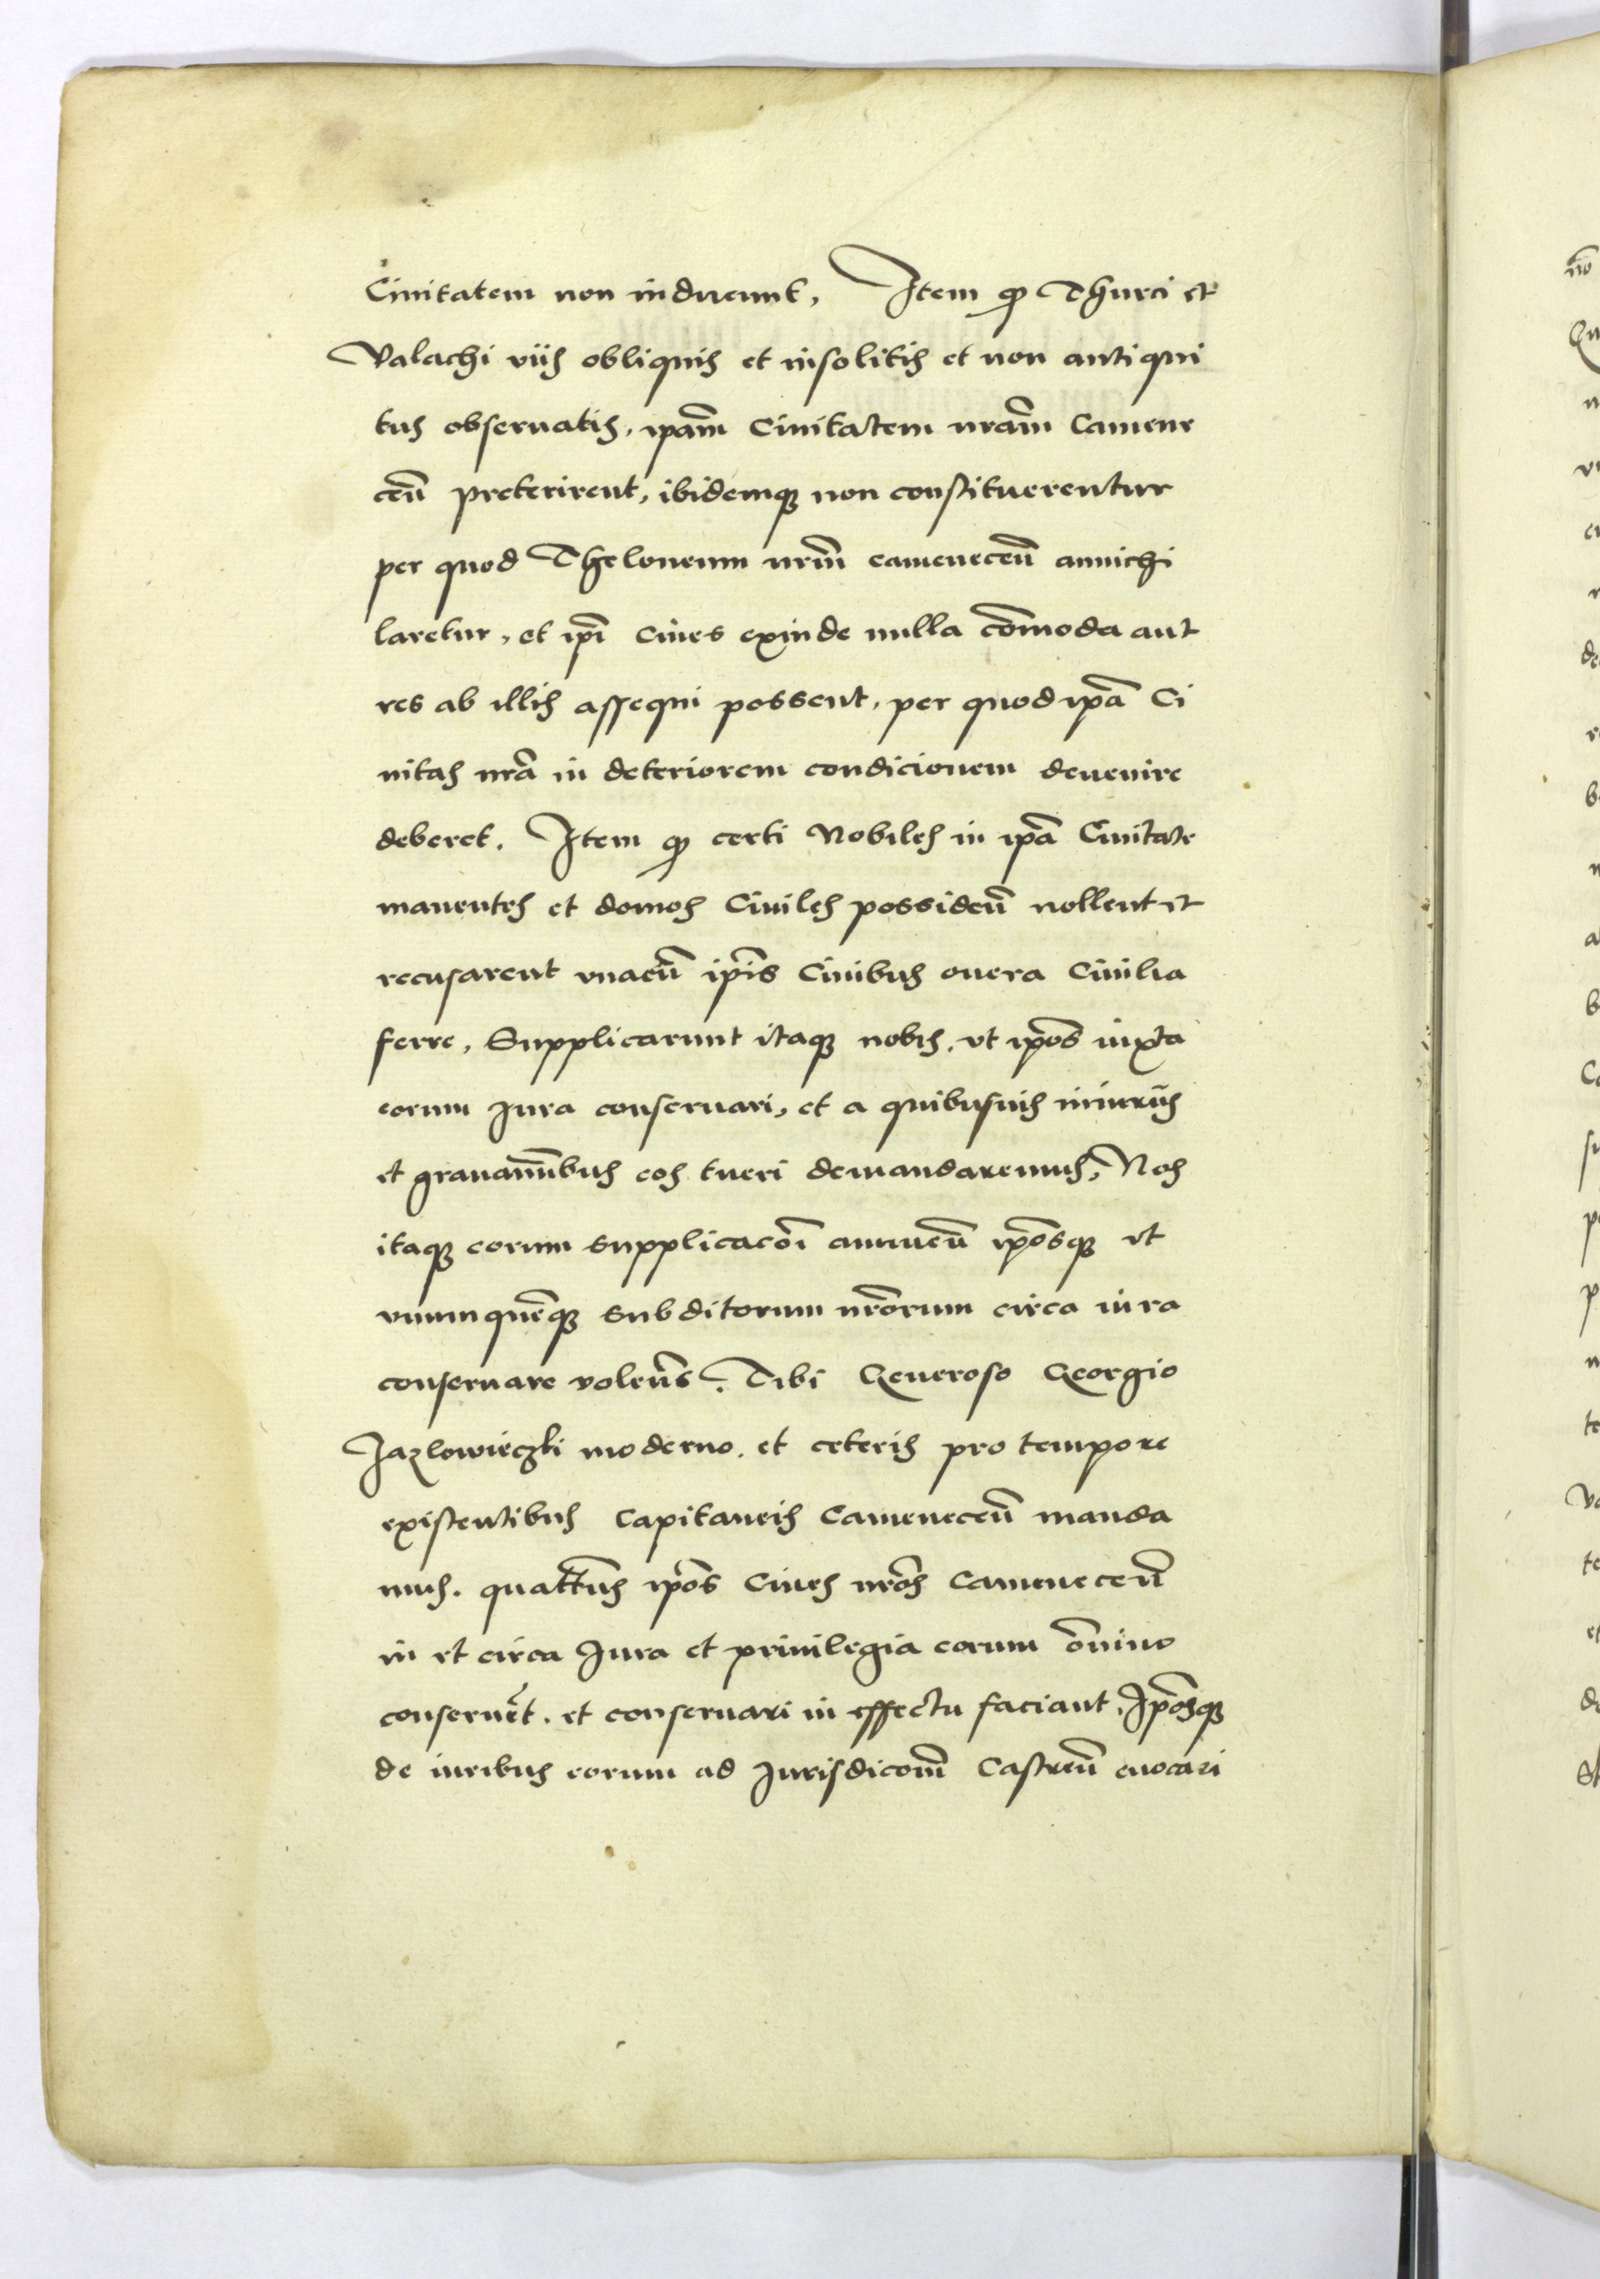 Ciuitatem non induerunt, Item ꝙ Thurci et
Valachi viis obliquis et insolitis et non antiqui
tus obseruatis, ip̃am Ciuitatem nr̃am Camene
ceñ preterirent, ibidemqꝫ non constituerentur
per quod Theloneum nrm̃ cameneceñ annichi
laretur, et ip̃i ciues exinde nulla com̃oda aut
res ab illis assequi possent, per quod ip̃a Ci
uitas nr̃a in deteriorem condicionem deuenire
deberet. Item ꝙ certi Nobiles in ip̃a Ciuitate
manentes et domos Ciuiles possideñ nollent et
recusarent vnacũ ip̃is Ciuibus onera Ciuilia
ferre, Supplicarunt itaqꝫ nobis, vt ip̃os iuxta
eorum Iura conseruari, et a quibusuis iniuriis
et grauaminibus eos tueri demandaremus, Nos
itaqꝫ eorum supplicacõi annueñ ip̃osqꝫ vt
vnumquẽqꝫ subditorum nr̃orum circa iura
conseruare voleñs. Tibi Generoso Georgio
Jazlowieczki moderno, et ceteris pro tempore
existentibus Capitaneis Cameneceñ manda
mus. quatẽus ip̃os Ciues nr̃os Cameneceñ
in et circa Iura et priuilegia eorum õnino
conseruẽt. et conseruari in effectu faciant, Ip̃osqꝫ
de iuribus eorum ad Iurisdicom̃ Castreñ euocari